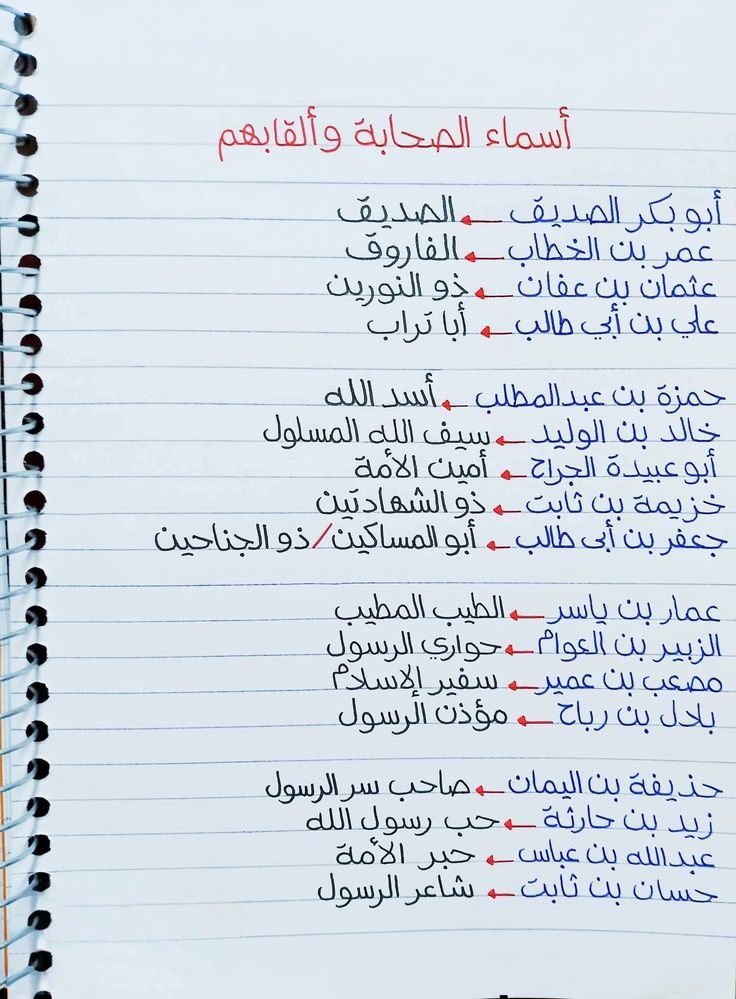 أسماء الصحابة وألقابهم
أبو بكر الصديق ← الصديق
عمر بن الخطاب ← الفاروق
عثمان بن عفان ← ذو النورين
علي بن أبي طالب ← أبا تراب
حمزة بن عبدالمطلب ← أسد الله
خالد بن الوليد ← سيف الله المسلول
أبو عبيدة الجراح ← أمين الأمة
خزيمة بن ثابت ← ذو الشهادتين
جعفر بن أبى طالب ← أبو المساكين/ذو الجناحين
عمار بن ياسر ← الطيب المطيب
الزبير بن العوام ← حواري الرسول
مصعب بن عمير ← سفير الإسلام
بلال بن رباح ← مؤذن الرسول
حذيفة بن اليمان ← صاحب سر الرسول
زيد بن حارثة ← حب رسول الله
عبدالله بن عباس ← حبر الأمة
حسان بن ثابت ← شاعر الرسول